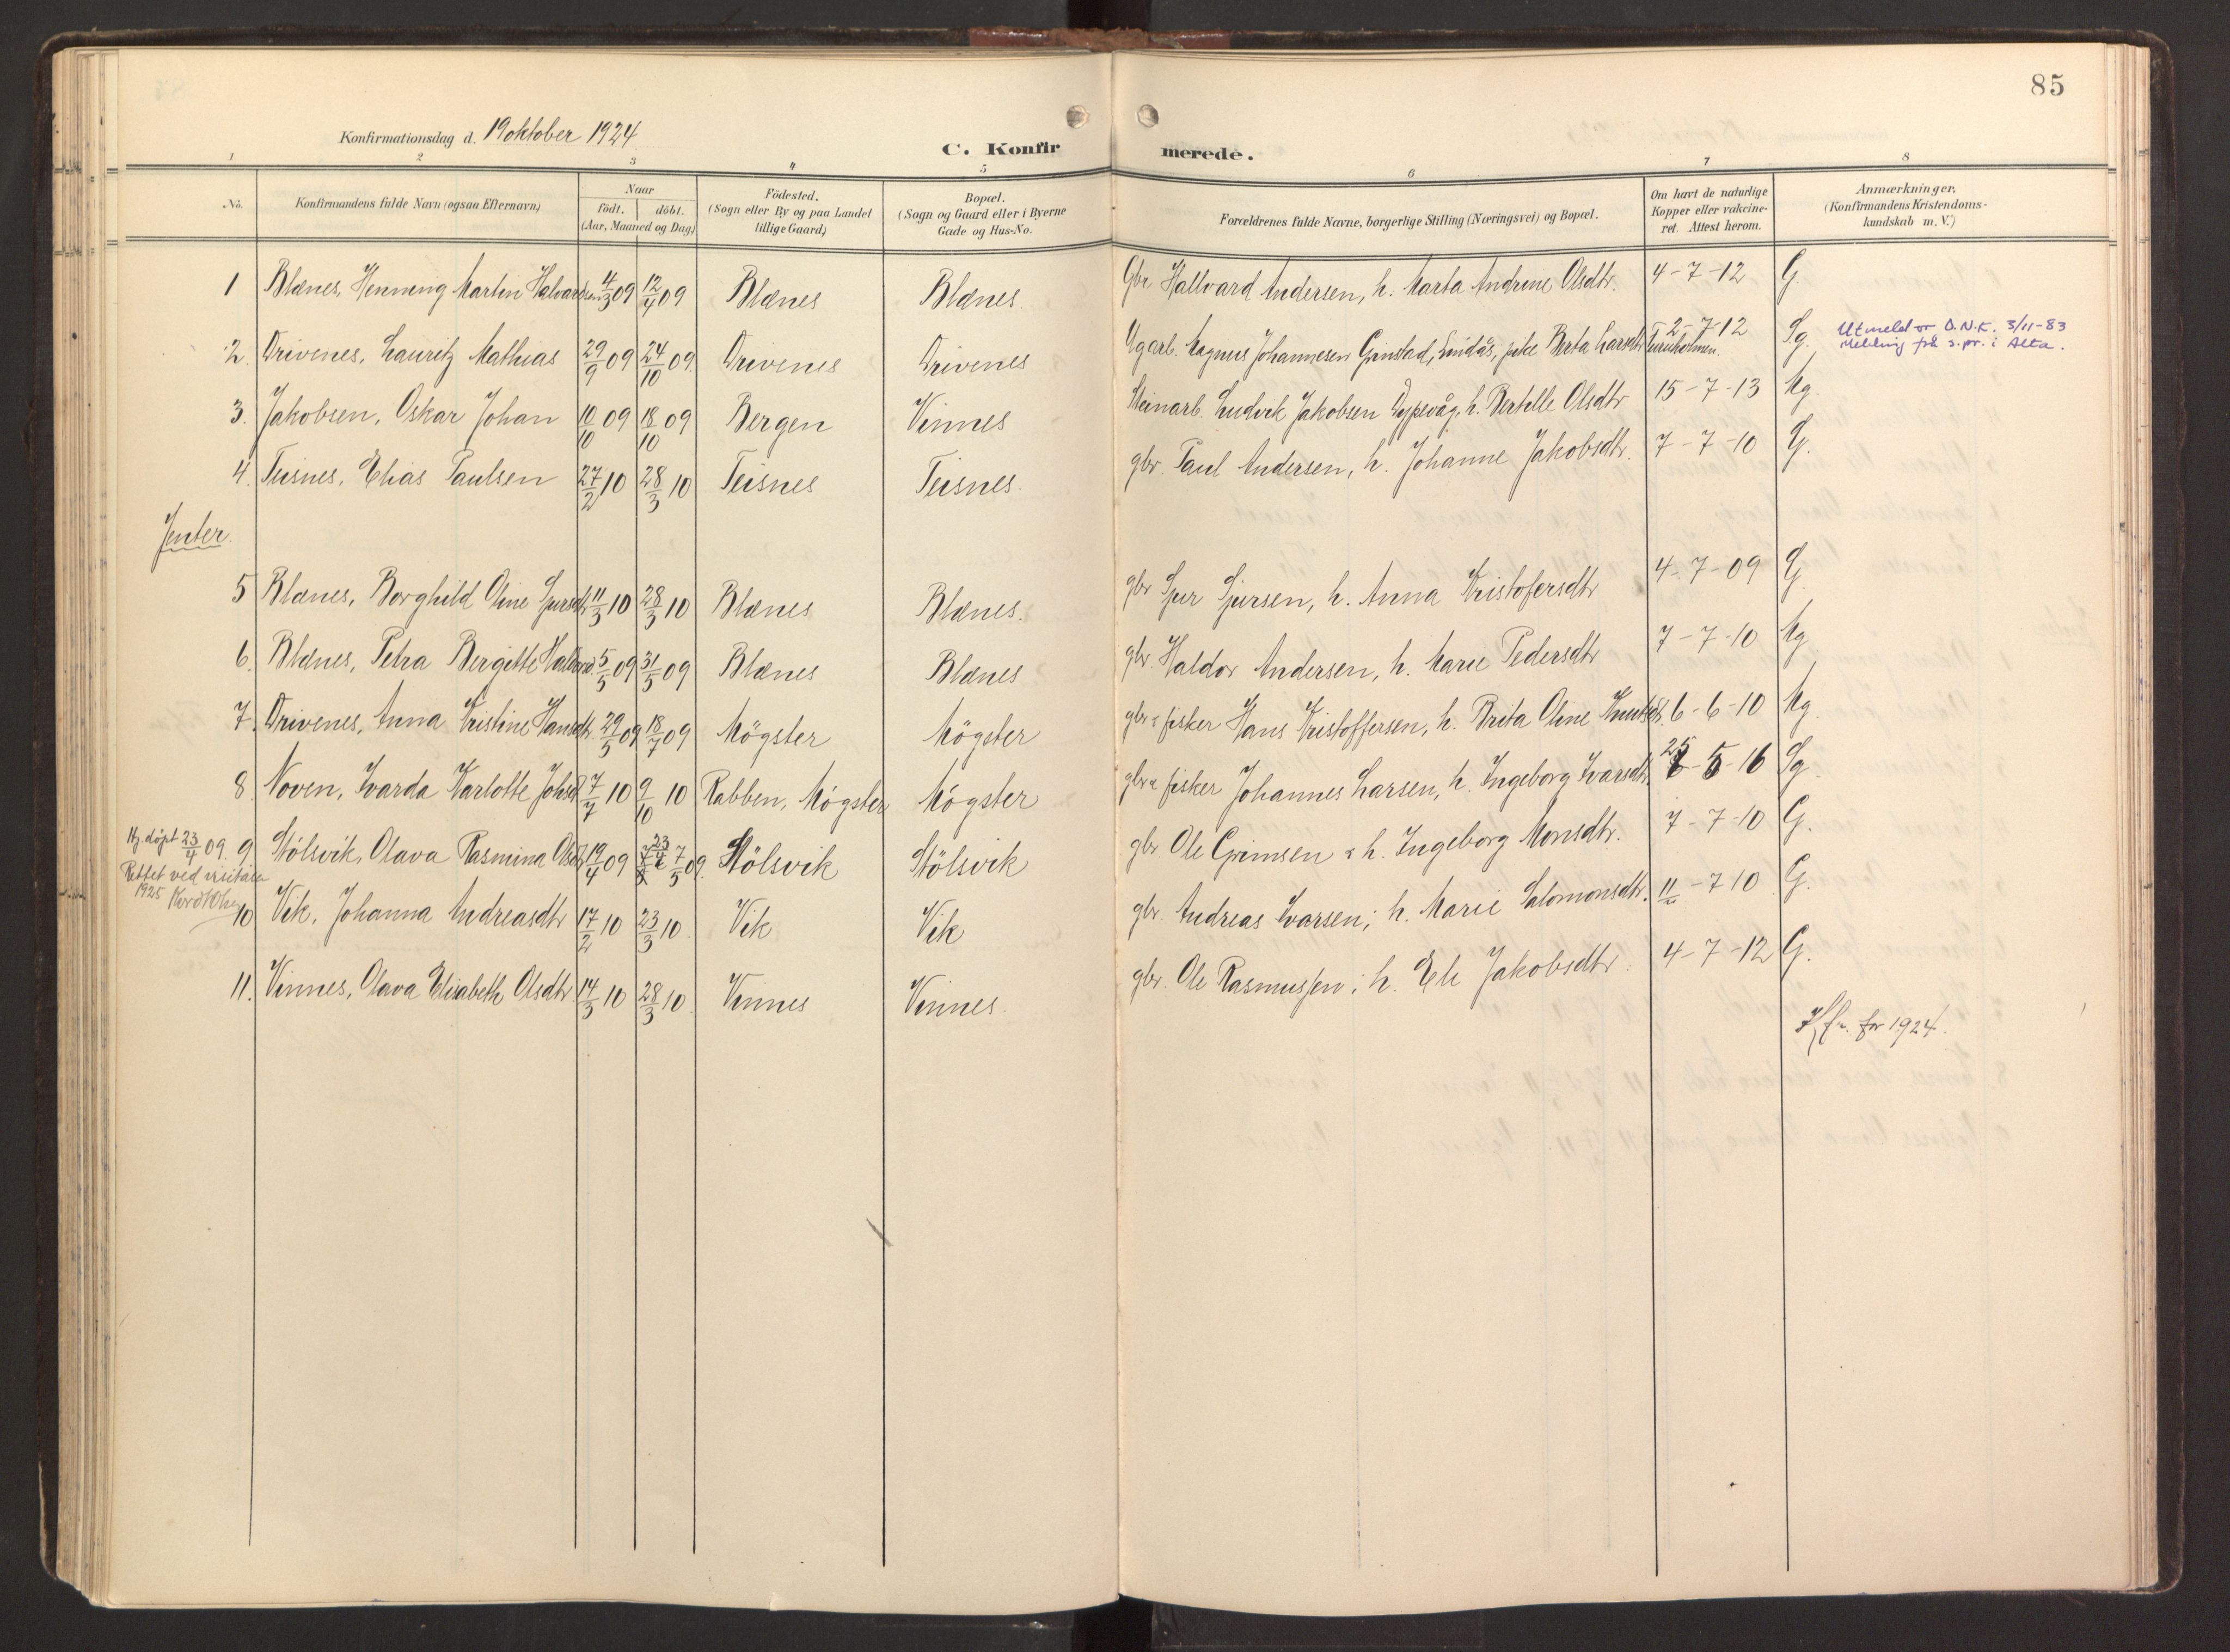 85
Konfirmationsdag d. 19 oktober 1924
C. Konfirmerede.
1 2 3 4 5 6 7 8
No. Konfirmandens fulde Navn (ogsaa Efternavn) Naar födt. döbt. (Aar, Maaned og Dag) Födested. (Sogn eller By og paa Landet tillige Gaard) Bopæl. (Sogn og Gaard eller i Byerne Gade og Hus-No. Forældrenes fulde Navne, borgerlige Stilling (Næringsvei) og Bopæl. Om havt de naturlige Kopper eller vakcineret. Attest herom. Anmærkninger. (Konfirmandens Kristendomskundskab m. V.)
1 Blænes, Henning Martin Halvardsen 4/3 09 12/4 09 Blænes Blænes. Gbr Hallvard Andersen, h. Marta Andrine Olsdtr. 4-7-12 G.
2. Drivenes, Lauritz Mathias 29/9 09 24/10 09. Drivenes Drivenes Ugarb. Magnus Johannesen Grinstad, Lindås, pike Berta Larsdtr 2-7-12 Sg. Utmeldt D.N.K. 3/11-83
Melding frå s.pr. i Alta.
3. Jakobsen, Oskar Johan 10/10 09 18/10 09 Bergen Vinnes Steinarb. Ludvik Jakobsen Dypevåg, h. Bertelle Olsdtr 15-7-13 Mg.
4. Teisnes, Elias Paulsen 27/2 10 28/3 10 Teisnes Teisnes. gbr. Paul Andersen, h. Johanne Jakobsdtr. 7-7-10 G.
Jenter.
5 Blænes, Borghild Oline Sjursdtr 11/3 10 28/3 10 Blænes Blænes. gbr Sjur Sjursen, h. Anna Kristofersdtr 4-7-09 G
6. Blænes, Petra Bergitte Haldorsd. 5/5 09 31/5 09 Blænes Blænes gbr. Haldor Andersen, h. Marie Pedersdtr 7-7-10 Mg
7. Drivenes, Anna Kristine Hansdtr 29/5 09 18/7 09 Mögster Mögster gbr & fisker Hans Kristoffersen, h. Brita Oline Knutsdtr. 6-6-10 Mg
8. Noven, Ivarda Karlotte Johsd. 7/7 10 9/10 10 Rabben, Mögster Mögster gbr & fisker Johannes Larsen, h. Ingeborg Ivarsdtr. 25-5-16 Sg
Hj.døpt 23/4 09. 9 Stölsvik, Olava Rasmina Olsd. 19/4 09 23/4 7/5 09. Stölsvik Stölsvik gbr Ole Grimsen & h. Ingeborg Monsdtr. 7-7-10 G.
Rettet ved visitasen
1925
10 Vik, Johanna Andreasdtr 17/2 10 23/3 10. Vik Vik gbr. Andreas Ivarsen; h. Marie Salomonsdtr. 11-7 10 G.
11. Vinnes, Olava Elisabeth Olsdtr 14/3 10 28/3 10. Vinnes Vinnes. gbr. Ole Rasmussen; h. Eli Jakobsdtr. 4-7-12 G.
for 1924.